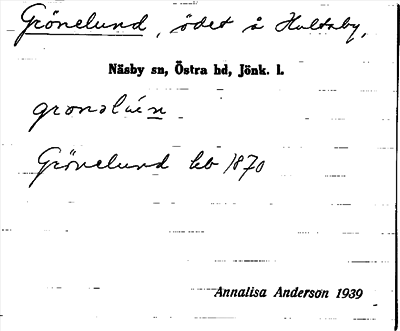 Grönelund, ödet å Hultaby,
Näsby sn, Östra hd, Jönk. l.
gronəlún
Grönelund kb 1870
Annalisa Anderson 1939